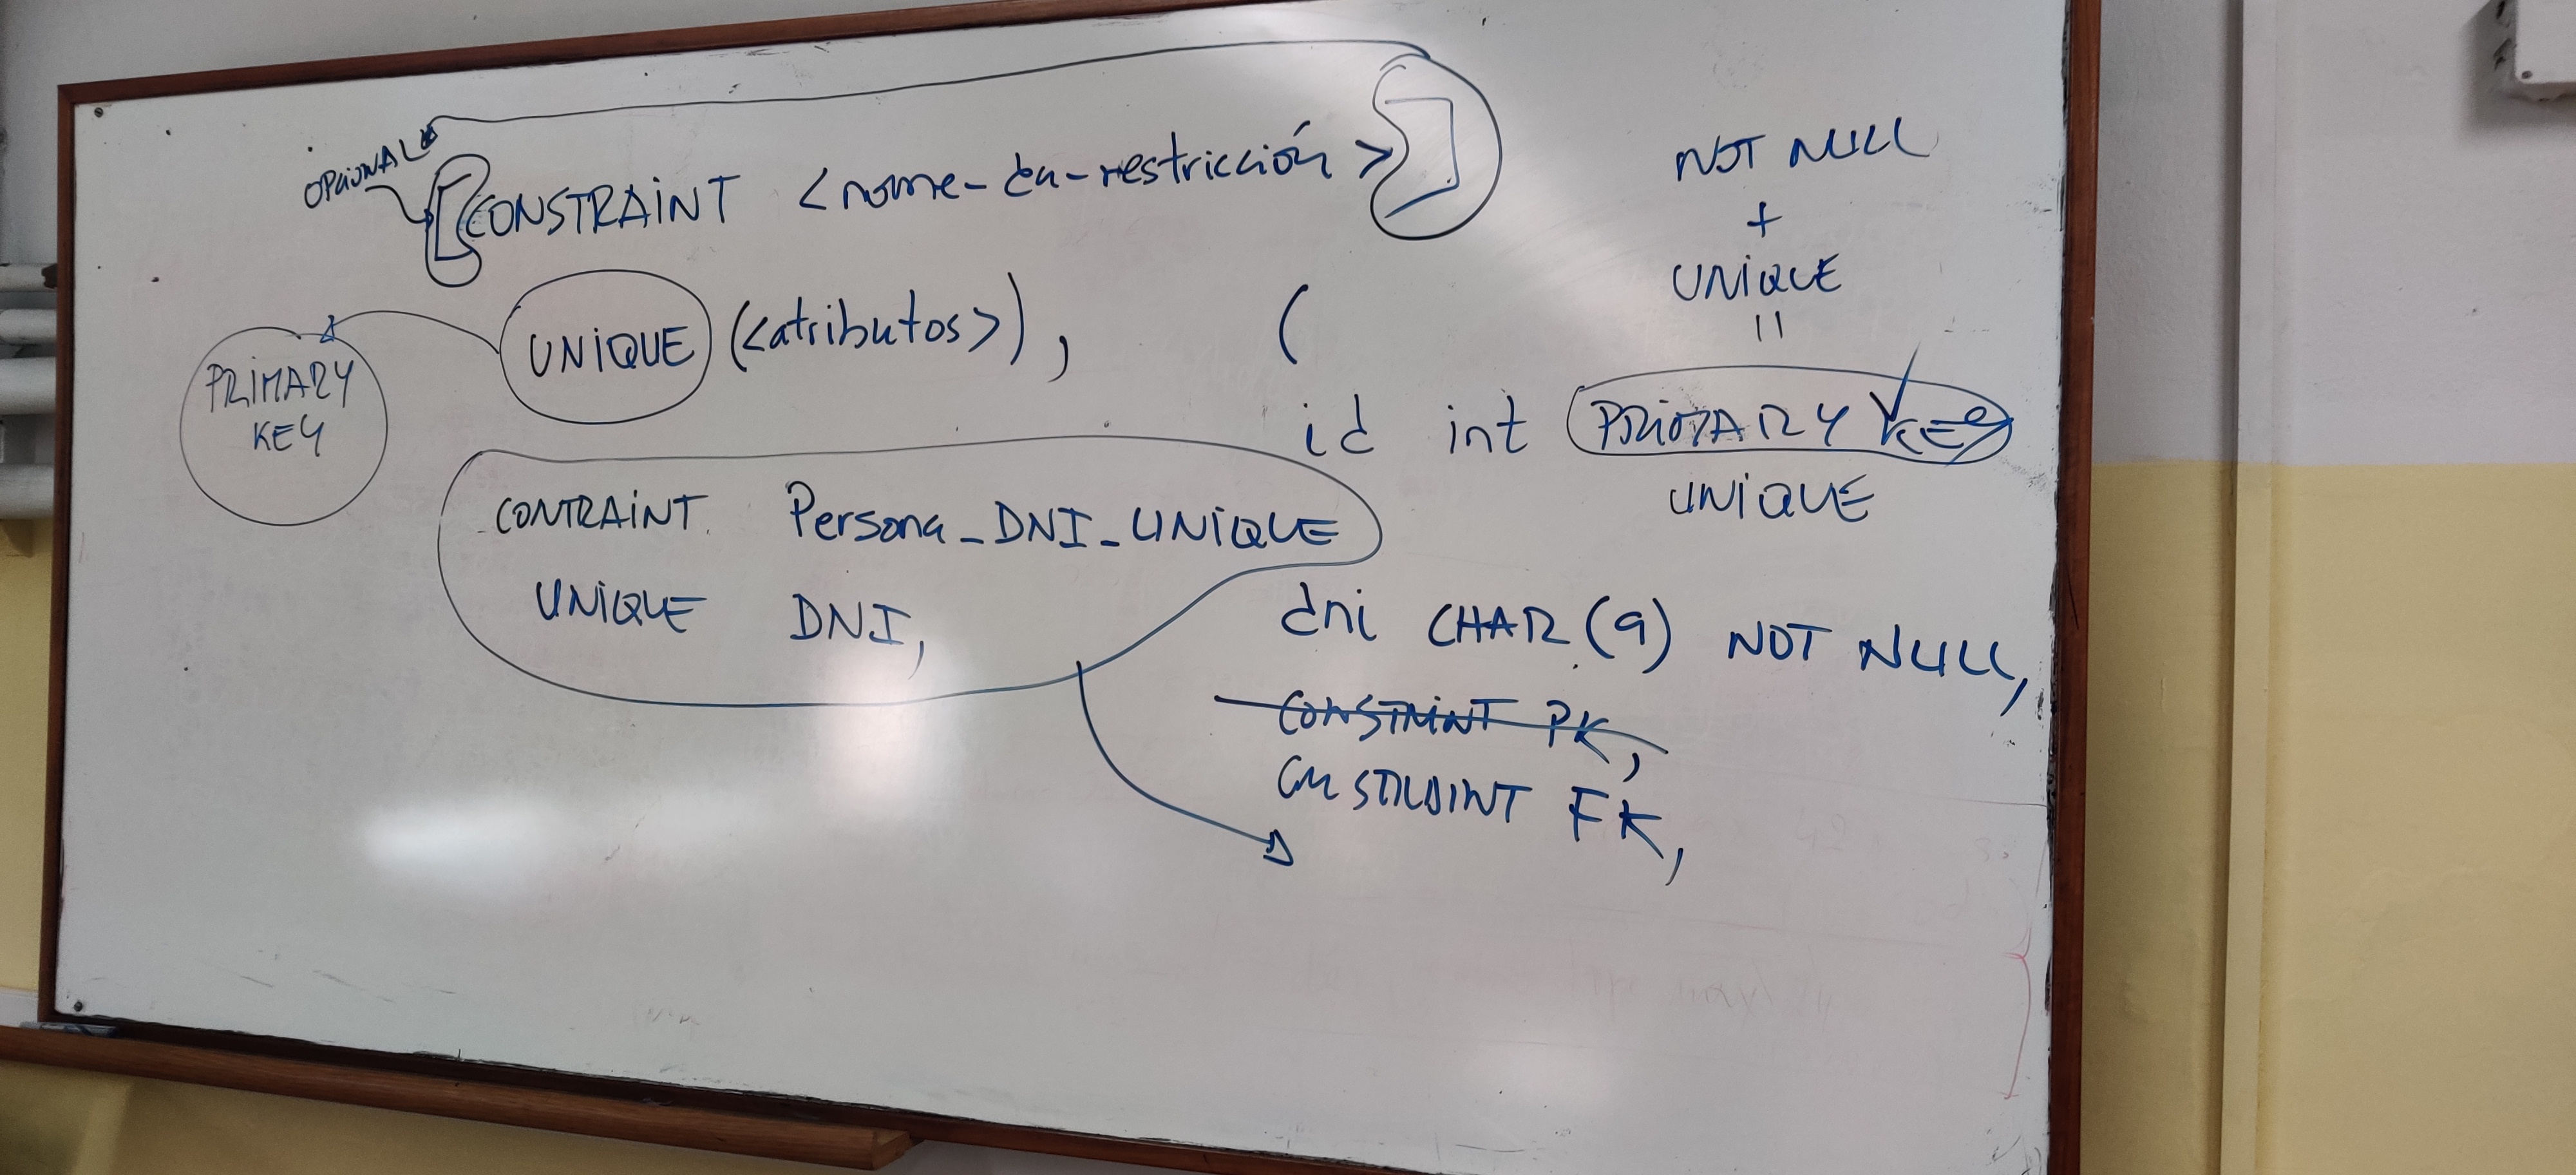 OPCIONAL
[CONSTRAINT <nome-da-restricción>]
UNIQUE (<atributos>),
PRIMARY
KEY
CONTRAINT Persona_DNI_UNIQUE
UNIQUE DNI,
NOT NULL
+
UNIQUE
=
(
id int PRIMARY KEY
UNIQUE
dni CHAR(9) NOT NULL,
CONSTRAINT PK,
CONSTRAINT FK,